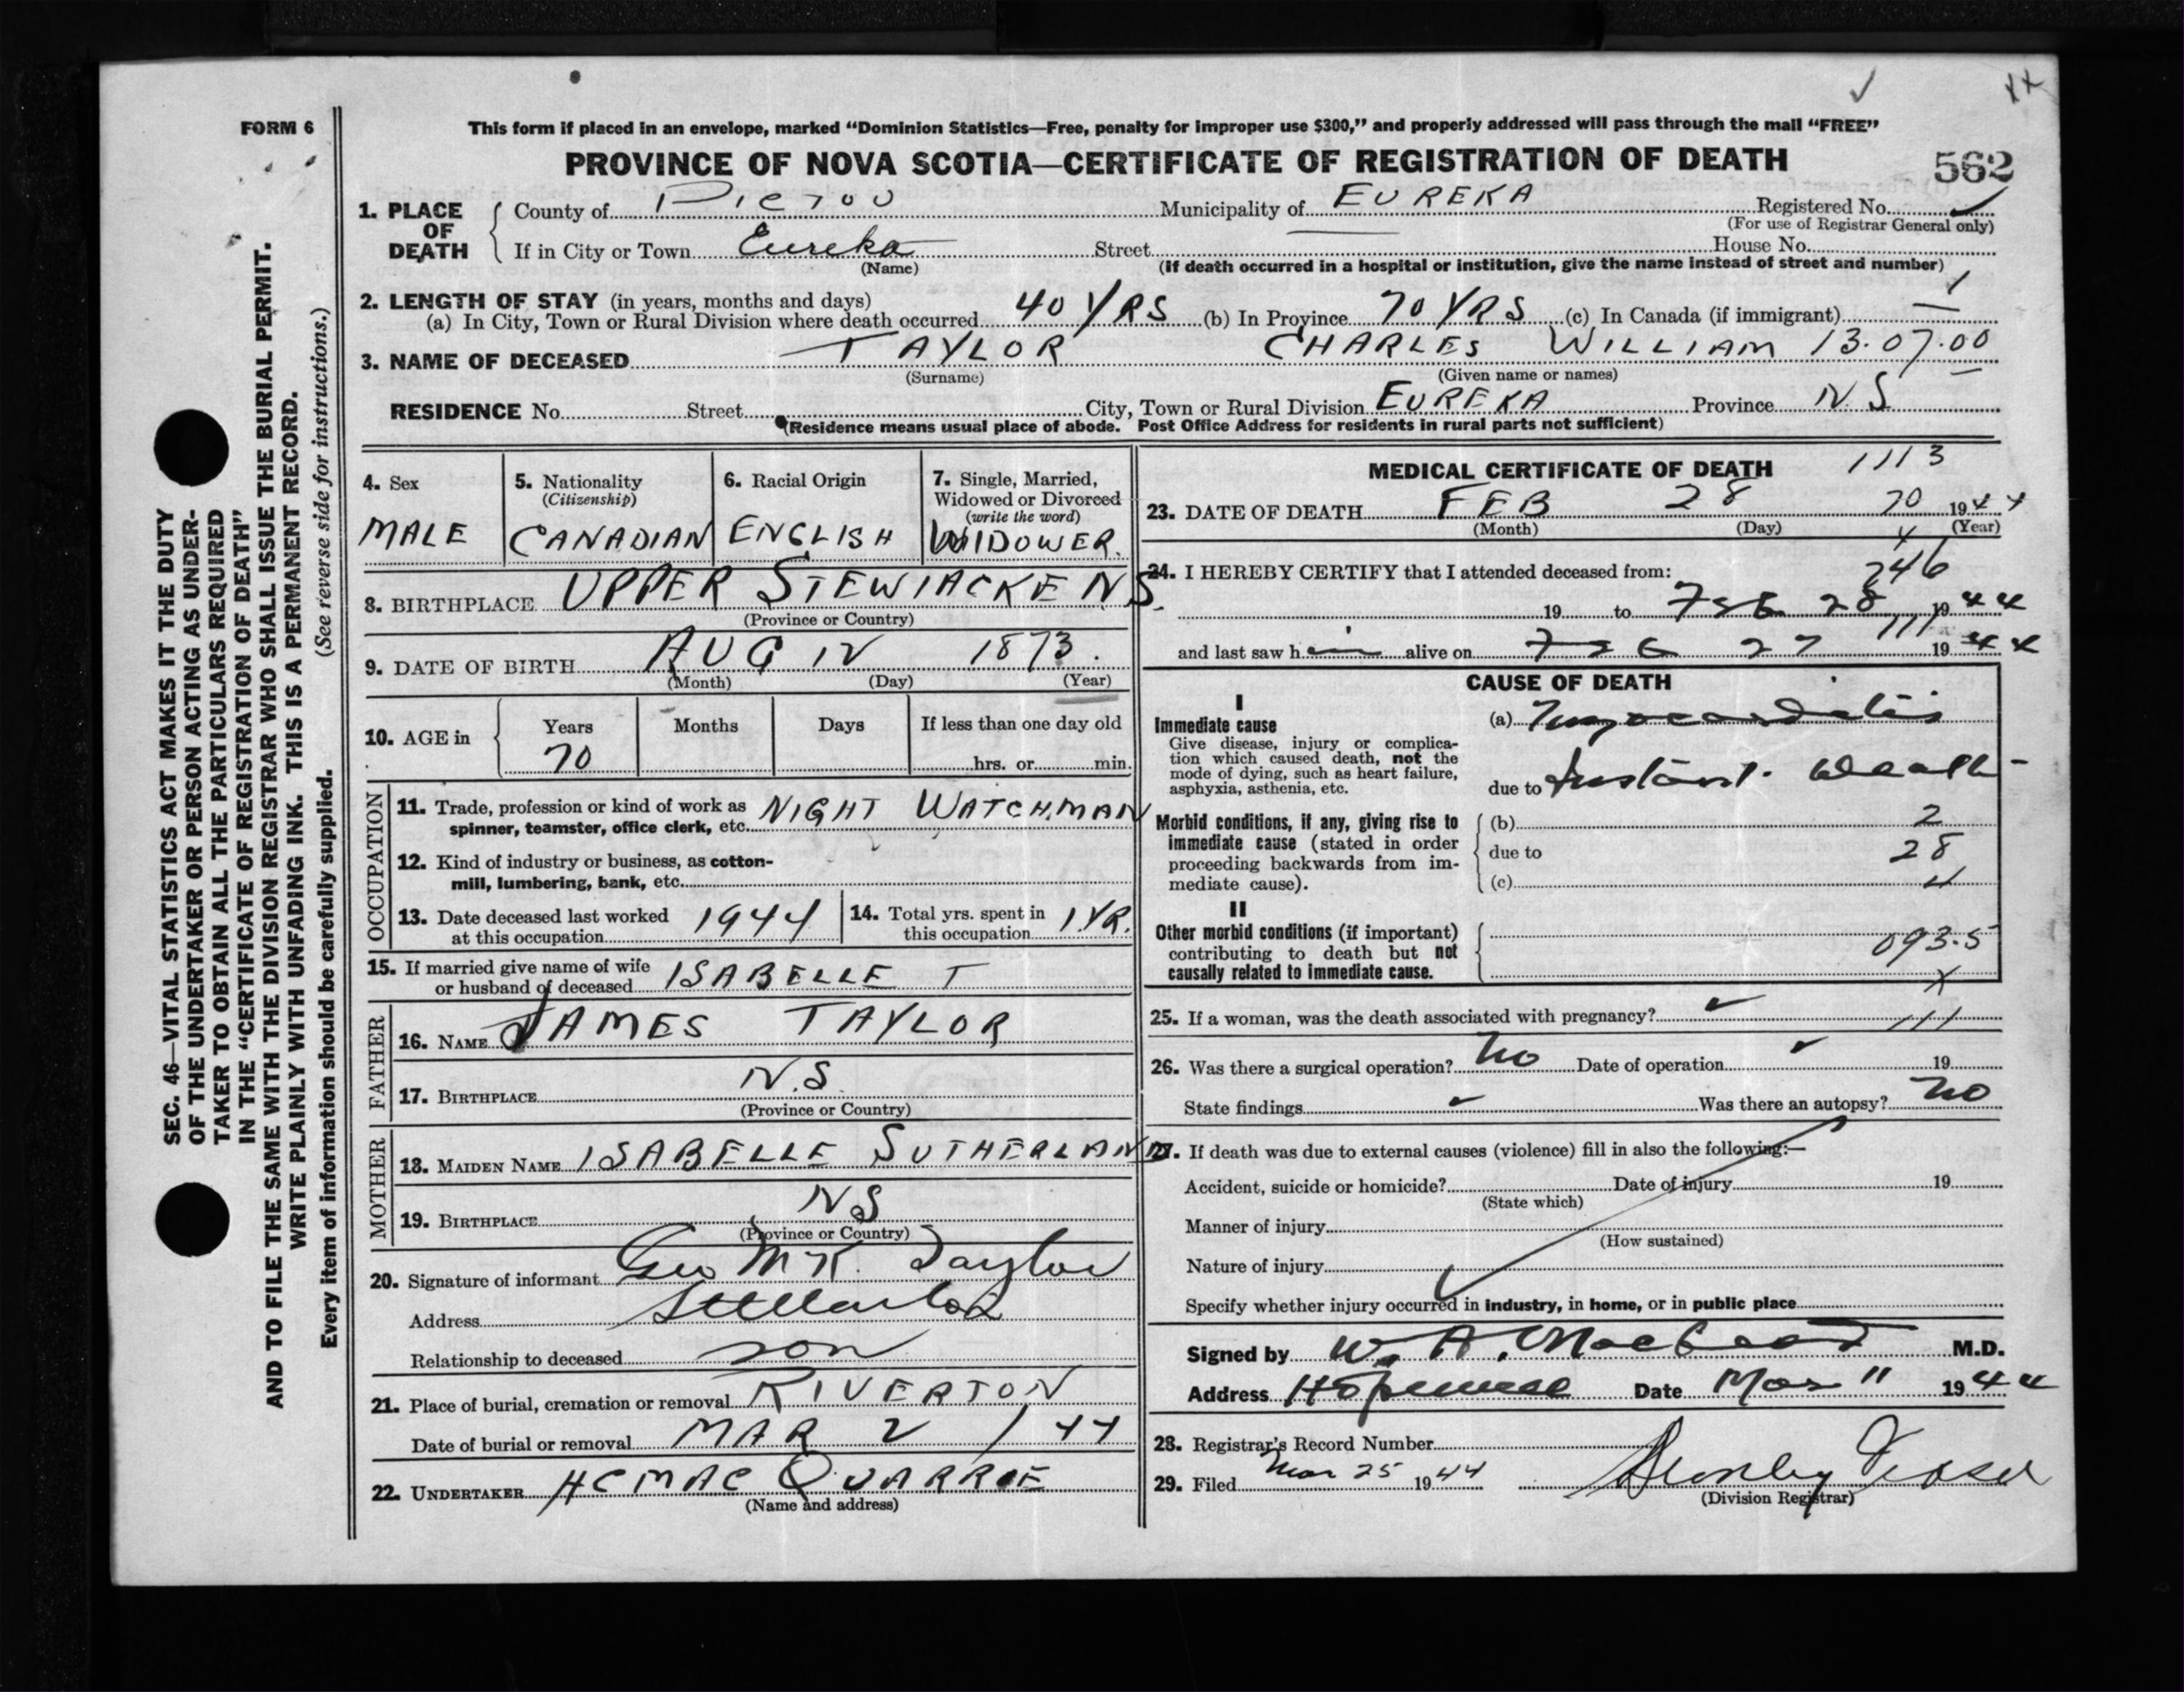 FORM 6
This form if placed in an envelope, marked “Dominion Statistics—Free, penalty for improper use $300,” and properly addressed will pass through the mail “FREE”
PROVINCE OF NOVA SCOTIA—CERTIFICATE OF REGISTRATION OF DEATH
562
1. PLACE OF DEATH County of PICTOU Municipality of EUREKA Registered No.
(For use of Registrar General only)
If in City or Town Eureka Street House No.
(Name) (If death occurred in a hospital or institution, give the name instead of street and number)
2. LENGTH OF STAY (in years, months and days)
(a) In City, Town or Rural Division where death occurred 40 YRS (b) In Province 70 YRS (c) In Canada (if immigrant) —
3. NAME OF DECEASED TAYLOR CHARLES WILLIAM 13.07.00
(Surname) (Given name or names)
RESIDENCE No. Street City, Town or Rural Division EUREKA Province N.S
(Residence means usual place of abode. Post Office Address for residents in rural parts not sufficient)
SEC. 46—VITAL STATISTICS ACT MAKES IT THE DUTY
OF THE UNDERTAKER OR PERSON ACTING AS UNDER-
TAKER TO OBTAIN ALL THE PARTICULARS REQUIRED
IN THE “CERTIFICATE OF REGISTRATION OF DEATH”
AND TO FILE THE SAME WITH THE DIVISION REGISTRAR WHO SHALL ISSUE THE BURIAL PERMIT.
WRITE PLAINLY WITH UNFADING INK. THIS IS A PERMANENT RECORD.
Every item of information should be carefully supplied. (See reverse side for instructions.)
4. Sex
MALE
5. Nationality
(Citizenship)
CANADIAN
6. Racial Origin
ENGLISH
7. Single, Married,
Widowed or Divorced
(write the word)
WIDOWER.
8. BIRTHPLACE UPPER STEWIACKE N.S.
(Province or Country)
9. DATE OF BIRTH AUG 12 1873.
(Month) (Day) (Year)
10. AGE in
Years Months Days If less than one day old
70 hrs. or min.
OCCUPATION
11. Trade, profession or kind of work as
spinner, teamster, office clerk, etc. NIGHT WATCHMAN
12. Kind of industry or business, as cotton-
mill, lumbering, bank, etc.
13. Date deceased last worked
at this occupation 1944
14. Total yrs. spent in
this occupation 1 YR.
15. If married give name of wife
or husband of deceased ISABELLE T
FATHER
16. NAME JAMES TAYLOR
17. BIRTHPLACE N.S.
(Province or Country)
MOTHER
18. MAIDEN NAME ISABELLE SUTHERLAND
19. BIRTHPLACE NS
(Province or Country)
20. Signature of informant Geo McK. Taylor
Address Stellarton
Relationship to deceased son
21. Place of burial, cremation or removal RIVERTON
Date of burial or removal MAR 2 / 44
22. UNDERTAKER HC MACQUARRIE
(Name and address)
MEDICAL CERTIFICATE OF DEATH 1113
23. DATE OF DEATH FEB 28 70 1944
(Month) (Day) 4 (Year)
24. I HEREBY CERTIFY that I attended deceased from: 246
19 to Feb 28 1944
111
and last saw him alive on Feb 27 1944
CAUSE OF DEATH
I
Immediate cause
Give disease, injury or complica-
tion which caused death, not the
mode of dying, such as heart failure,
asphyxia, asthenia, etc.
(a) Myocarditis
due to Instant. Death -
Morbid conditions, if any, giving rise to
immediate cause (stated in order
proceeding backwards from im-
mediate cause).
(b) 2
due to 28
(c) 4
II
Other morbid conditions (if important)
contributing to death but not
causally related to immediate cause.
093.5
X
25. If a woman, was the death associated with pregnancy? ✓
111
26. Was there a surgical operation? no Date of operation ✓ 19
State findings ✓ Was there an autopsy? no
27. If death was due to external causes (violence) fill in also the following:—
Accident, suicide or homicide? Date of injury 19
(State which)
Manner of injury
(How sustained)
Nature of injury
Specify whether injury occurred in industry, in home, or in public place
Signed by W. A. MacLeod M.D.
Address Hopewell Date Mar 11 1944
28. Registrar's Record Number
29. Filed Mar 25 1944 Stanley Fraser
(Division Registrar)